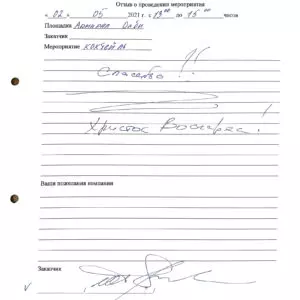 Отзыв о проведении мероприятия
«02» 05 2021 г. с 13 00 до 15 00 часов
Площадка
Заказчик
Мероприятие коктейль
Спасибо!!
Христос Воскрес!
Ваши пожелания компании
Заказчик